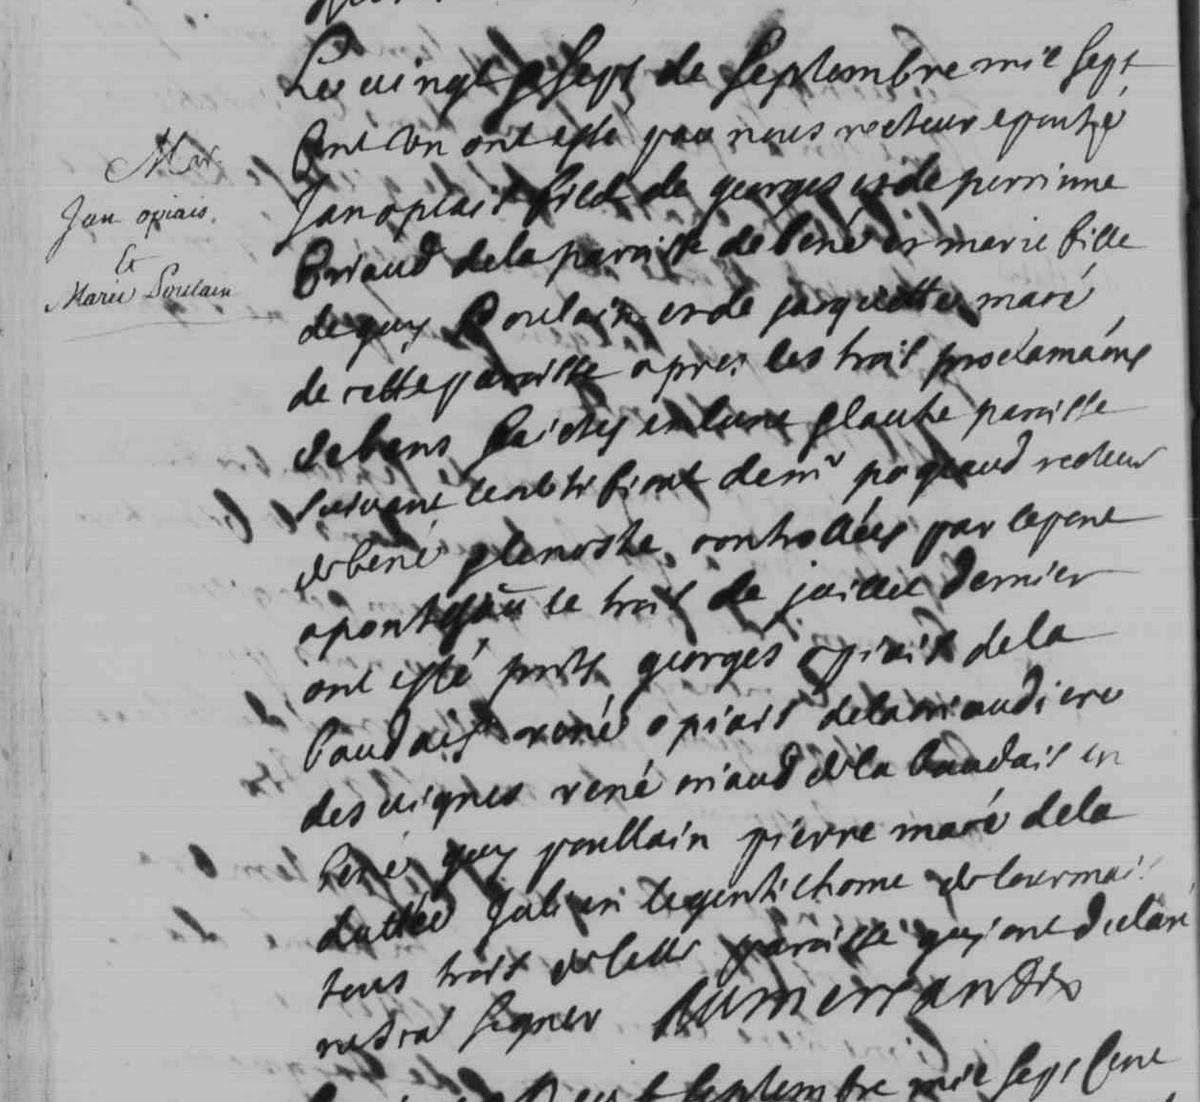 Mar
Jan opiais
Et
Marie Poulain
Le vingt & sept de septembre mil sept
cent un ont esté par nous recteur epousé
Jan opiais fils de georges et de perrinne
Briaud de la paroisse de bené et marie fille
de guy Poulain et de jacquette maré
de cette paroisse apres les trois proclamaons
de bans faictes en lune & lautre paroisse
suivant le certifficat de mr poqueaud recteur
de bené controllées par
le trois de juillet dernier
ont esté pnts georges opiais de la
baudais rené opiais de la riaudiere
des vignes rené riaud de la baudais en
bené guy poullain pierre maré de la
Julien legentichome de
tous trois de cette paroisse qui ont declare
ne sca signer
septembre mil sept cent